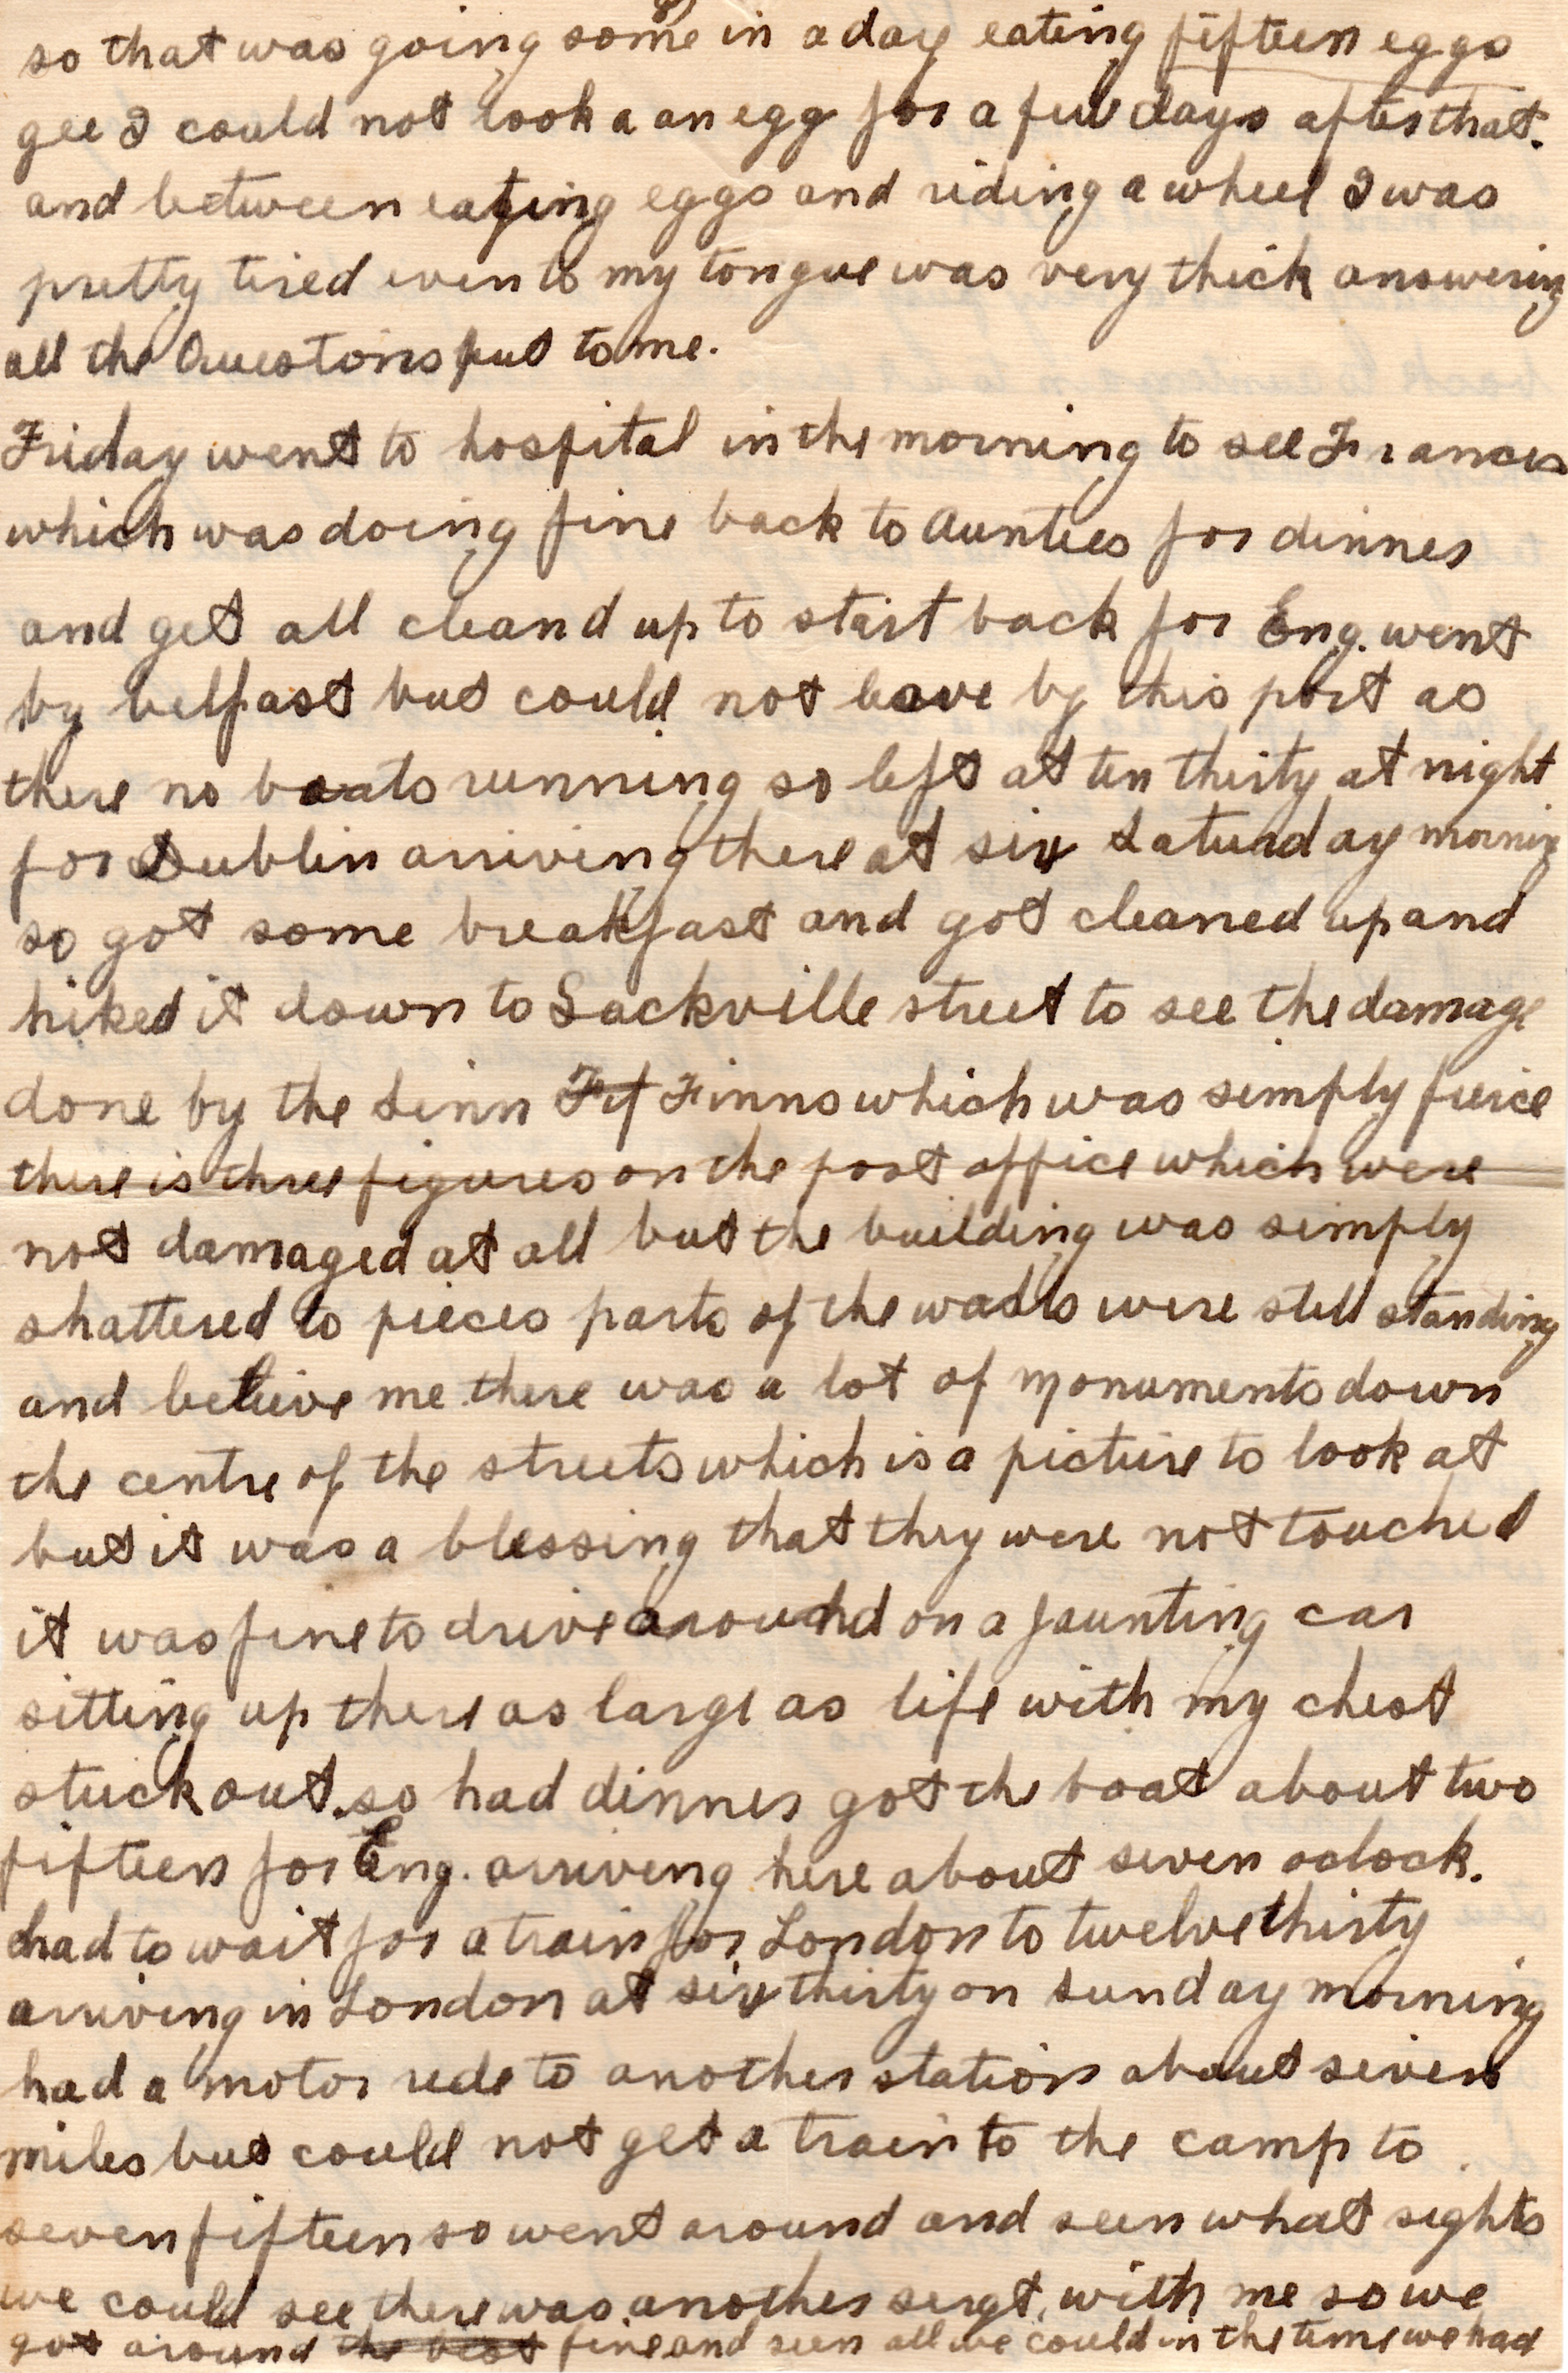 8)
so that was going some in a day eating fifteen eggs
gee I could not look a an egg for a few days after that.
and between eating eggs and riding a wheel I was
pretty tired even to my tongue was very thick answering
all the Questons put to me.
Friday went to hospital in the morning to see Frances
which was doing fine back to Aunties for dinner
and get all cleand up to start back for Eng. went
by belfast but could not leave by this port as
there no boats running so left at ten thirty at night
for Dublin arriving there at six Saturday morning
so got some breakfast and got cleaned up and
hiked it down to Sackville street to see the damage
done by the Sinn Fif Finns which was simply fierce
there is three figures on the post office which were
not damaged at all but the building was simply
shattered to pieces parts of the walls were still standing
and believe me there was a lot of monuments down
the centre of the streets which is a picture to look at
but it was a blessing that they were not touched
it was fine to drive around on a jaunting car
sitting up there as large as life with my chest
stuck out. so had dinner got the boat about two
fifteen for Eng. arriving here about seven oclock.
had to wait for a train for London to twelve thirty
arriving in London at six thirty on Sunday morning
had a motor ride to another station about seven
miles but could not get a train to the camp to
seven fifteen so went around and seen what sights
we could see there was another sergt. with me so we
got around the best fine and seen all we could in the time we had